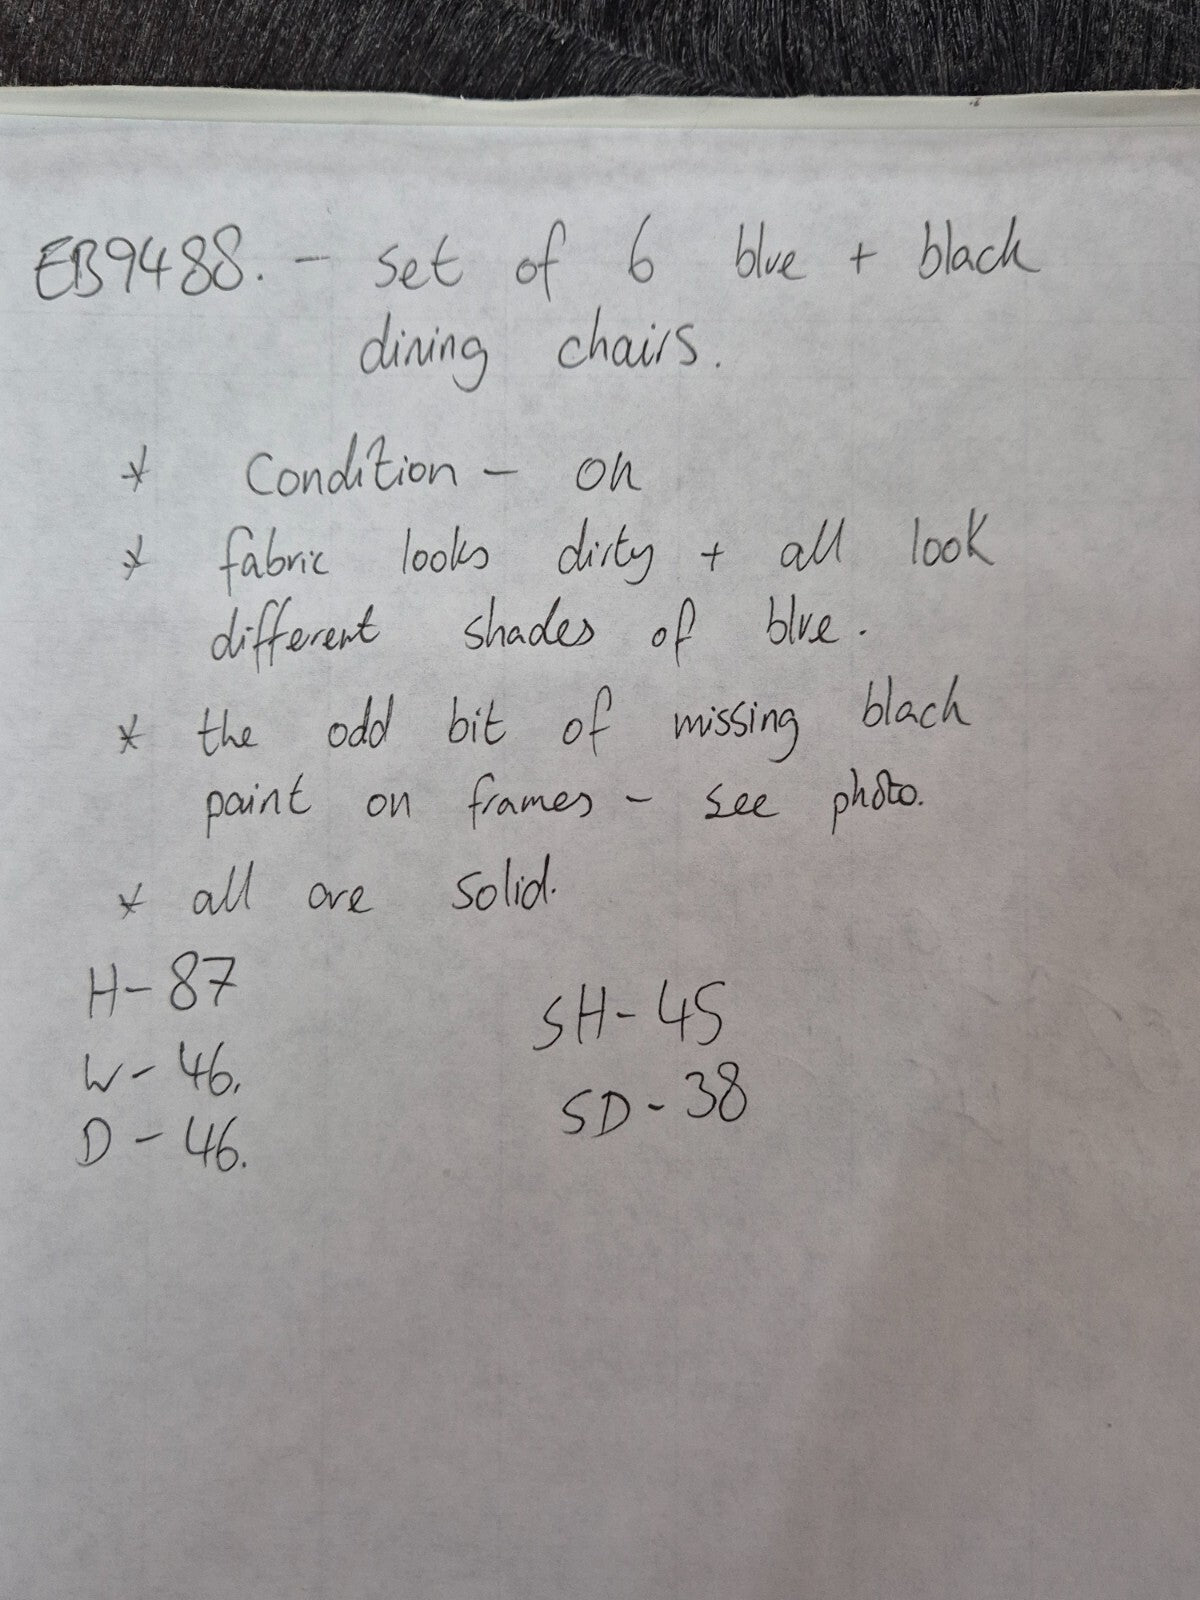 EB9488. - set of 6 blue + black
dining chairs.
* Condition - ok
* fabric looks dirty + all look
different shades of blue.
* the odd bit of missing black
paint on frames - see photo.
* all are solid.
H- 87
SH- 45
W- 46.
SD- 38
D - 46.